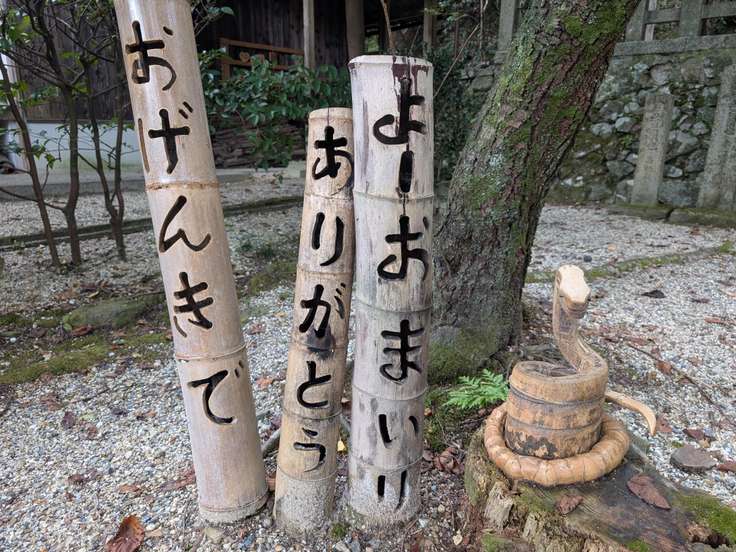 よーおまいり
ありがとう
おげんきで